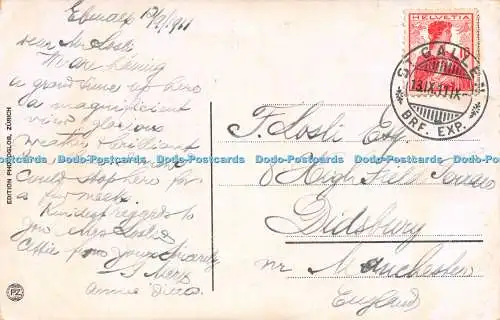 Ebenalp 13/9/1911
Dear Mr Losli
We are having
a grand time up here
a magnificient
view, glorious
weather & brilliant
could stop here for
a few weeks.
Kindest regards to
you Mrs Losli &
from yours sincerely
Annie
EDITION PHOTOGLOB, ZÜRICH
PZ
HELVETIA
ST. GALLEN
13.IX.11.IX-
BRF. EXP.
F. Losli Esq.
8 High Field Terrace
Didsbury
nr Manchester
England
Dodo-Postcards Dodo-Postcards Dodo-Postcards Dodo-Postcards Dodo-Postcards Dodo-Postcards